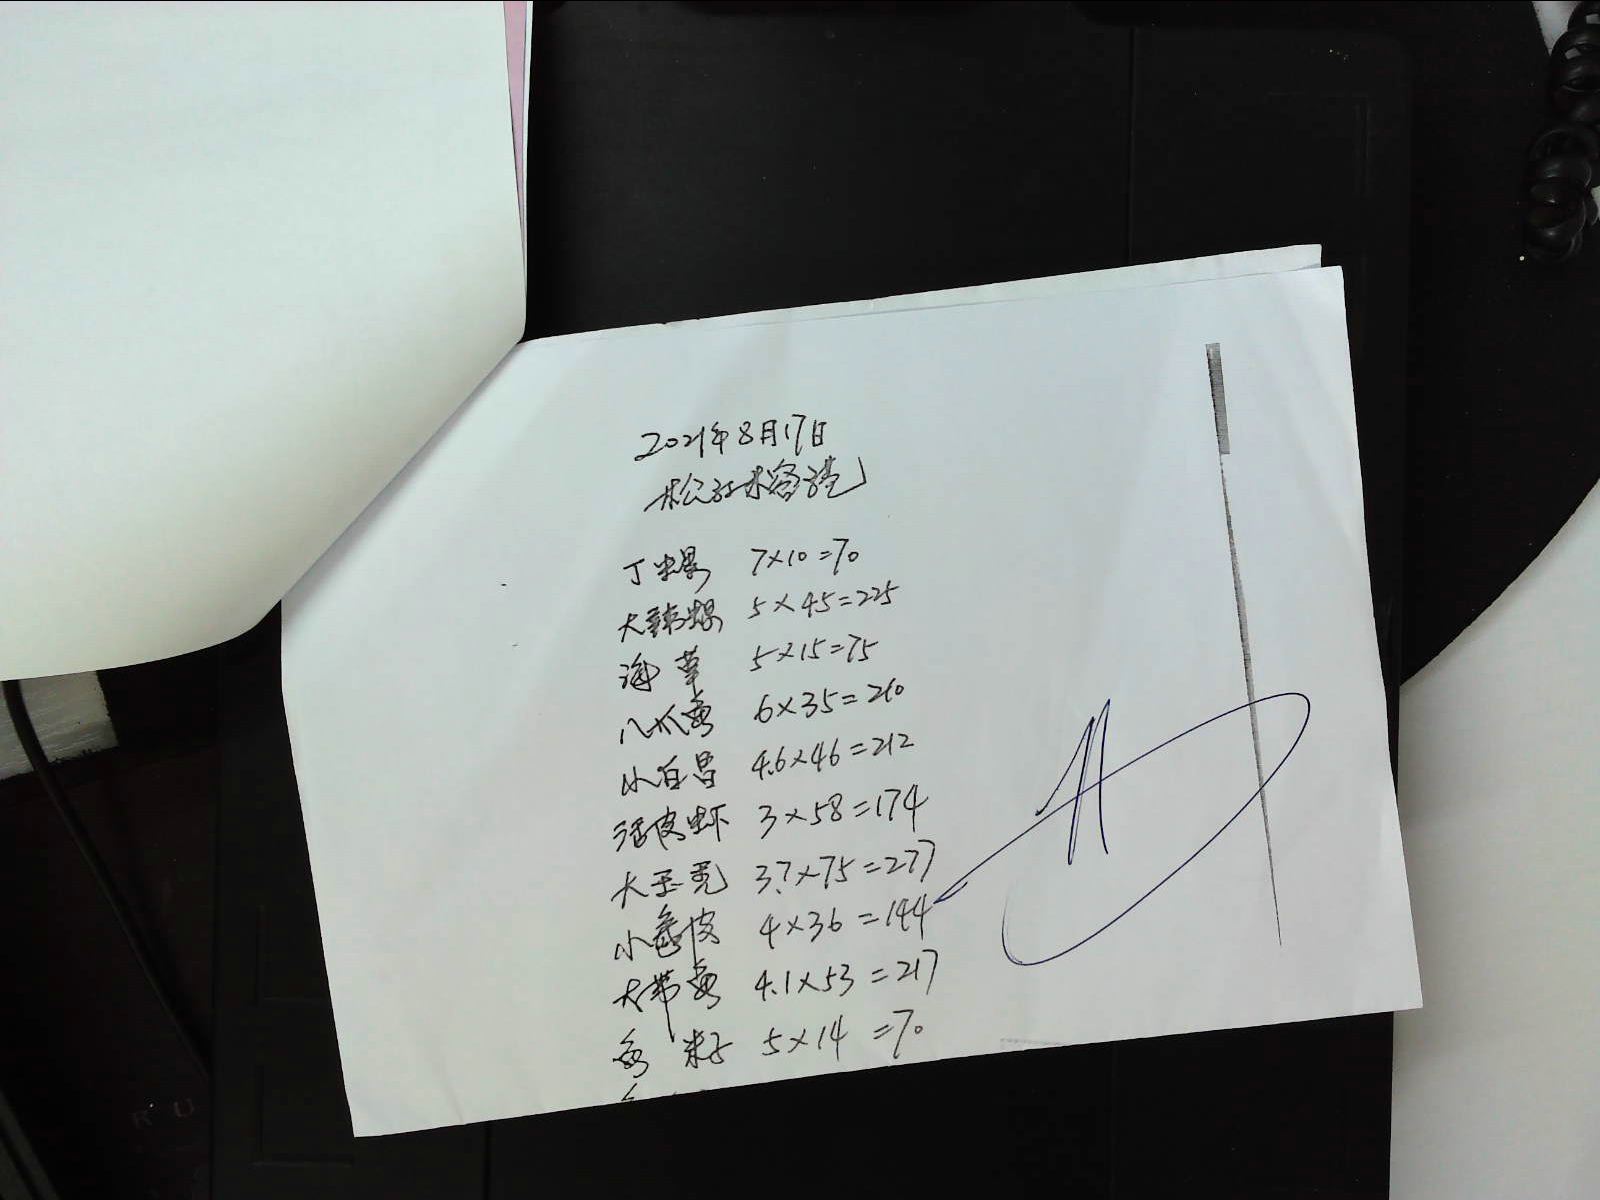 2021年8月17日
丁螺 7×10=70
大辣螺 5×45=225
海草 5×15=75
八爪鱼 6×35=210
小白昌 4.6×46=212
活皮虾 3×58=174
大玉秃 3.7×75=277
小卷皮 4×36=144
大带鱼 4.1×53=217
鱼籽 5×14=70